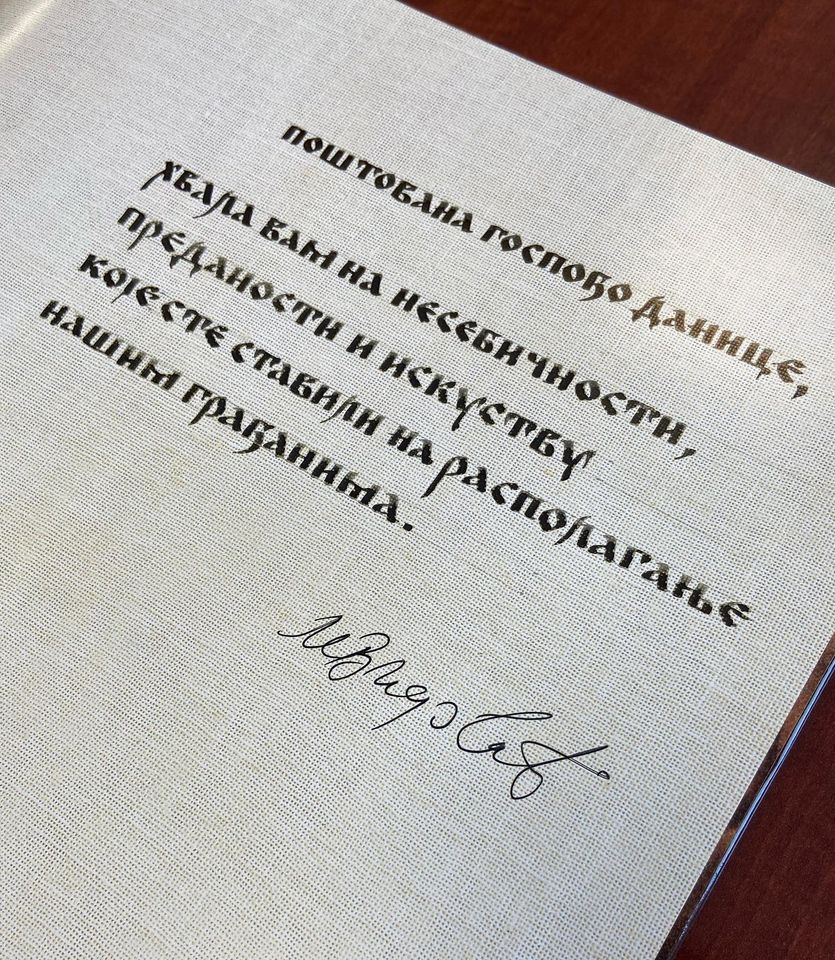 поштована госпођо Данице,
хвала вам на несебичности,
преданости и искуству
које сте ставили на располагање
нашим грађанима.